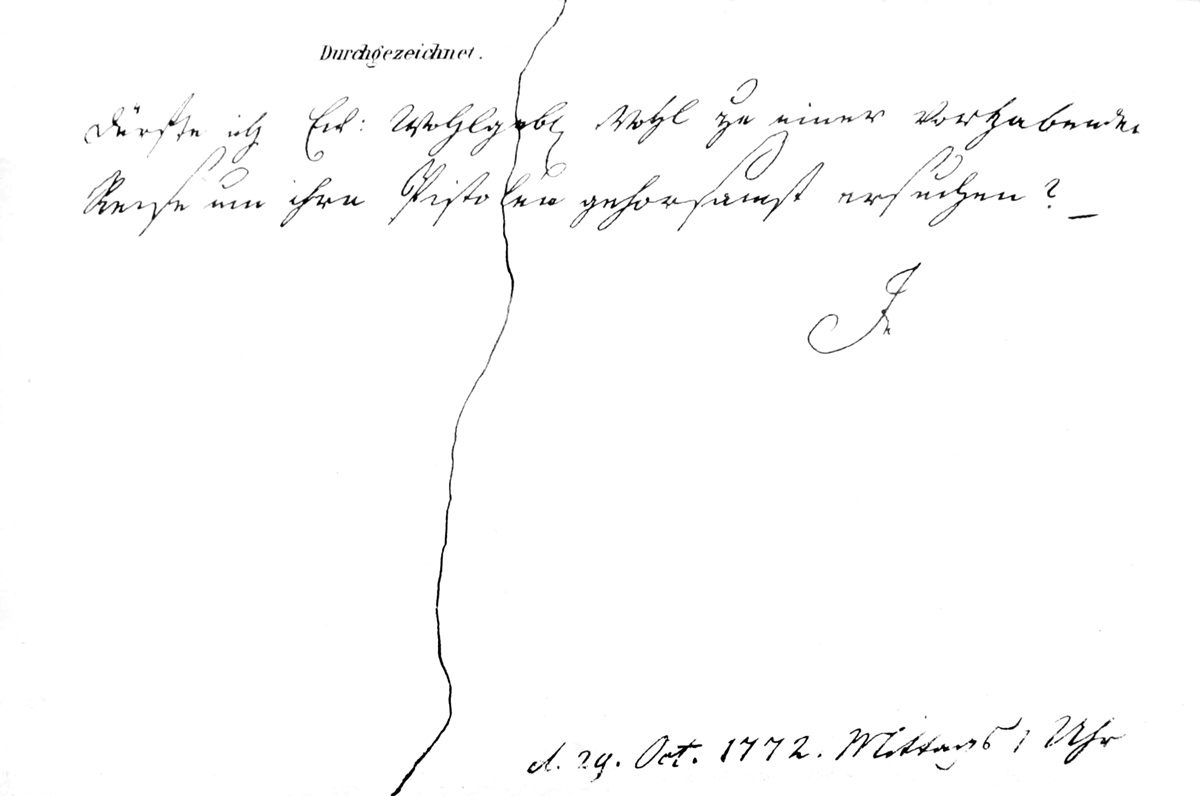 Durchgezeichnet.
Dürfte ich Ew: Wohlgeb. wohl zu einer vorhabenden
Reise um ihre Pistolen gehorsamst ersuchen? _
J
d. 29. Oct. 1772. Mittags 1 Uhr